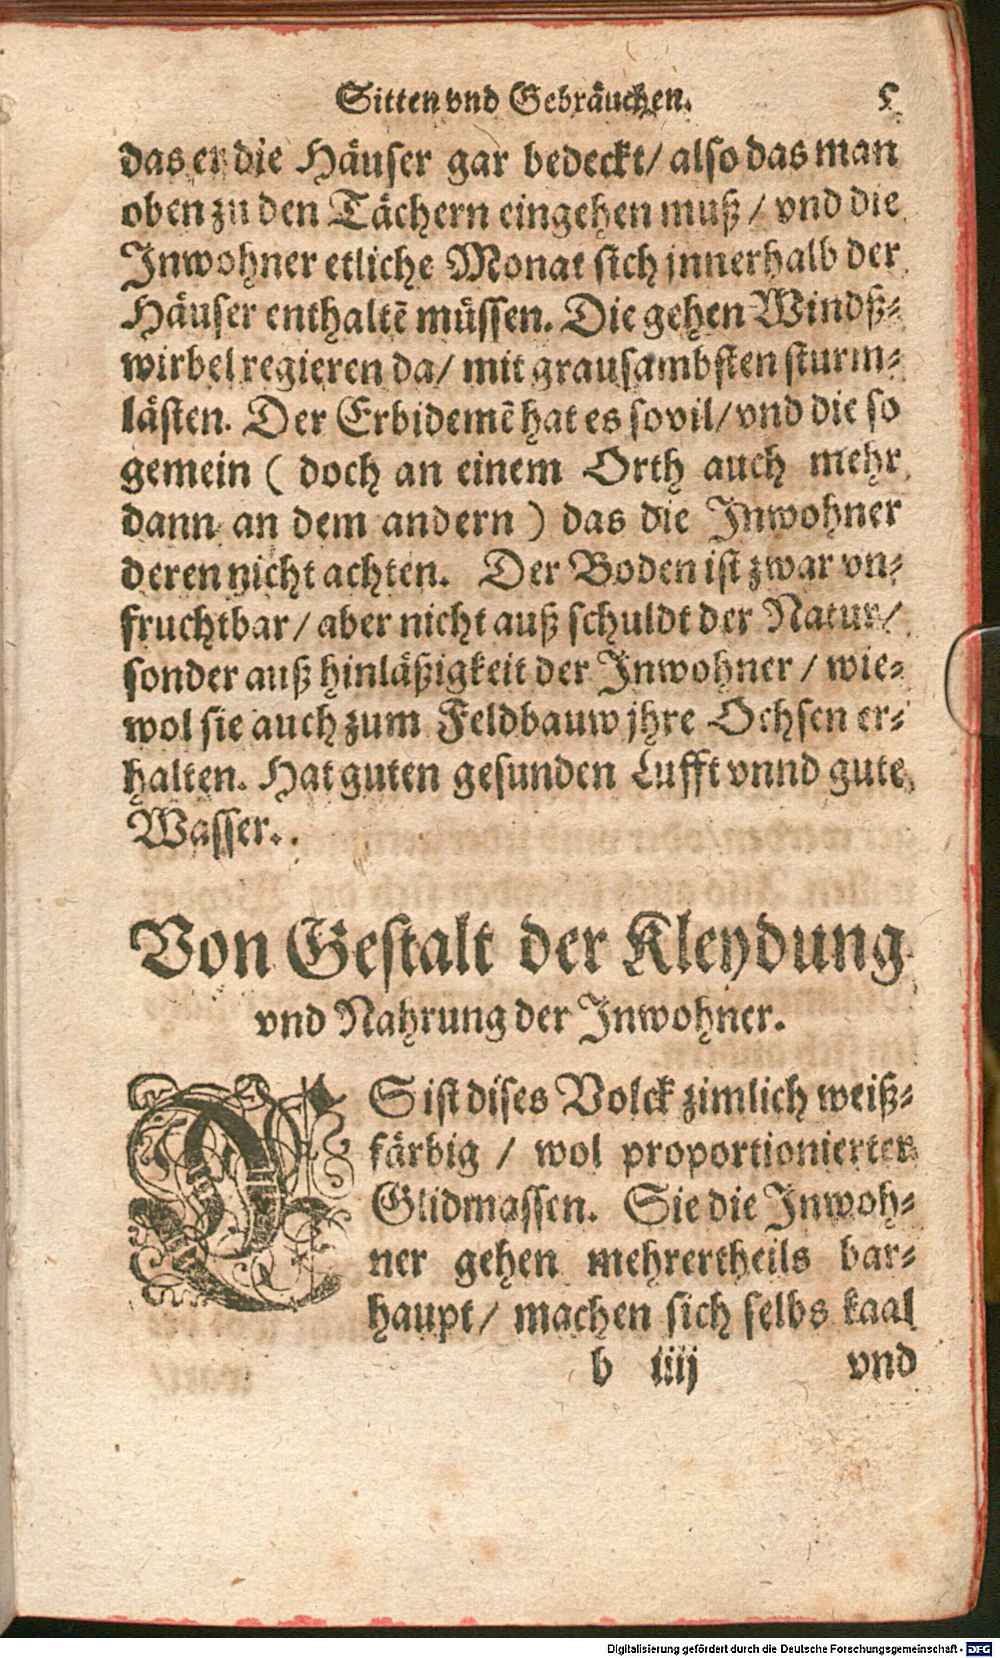 Sitten vnd Gebräuchen. 5
das er die Häuser gar bedeckt/ also das man
oben zu den Tächern eingehen muß / vnd die
Inwohner etliche Monat sich jnnerhalb der
Häuser enthaltē müssen. Die gehen Windß-
wirbel regieren da/ mit grausambsten sturm-
lästen. Der Erbidemē hat es sovil/ vnd die so
gemein ( doch an einem Orth auch mehr
dann an dem andern ) das die Inwohner
deren nicht achten. Der Boden ist zwar vn-
fruchtbar / aber nicht auß schuldt der Natur/
sonder auß hinläßigkeit der Inwohner / wie-
wol sie auch zum Feldbauw jhre Ochsen er-
halten. Hat guten gesunden Lufft vnnd gute
Wasser.
Von Gestalt der Kleydung
vnd Nahrung der Inwohner.
ES ist dises Volck zimlich weiß-
färbig / wol proportionierter
Glidmassen. Sie die Inwoh-
ner gehen mehrertheils bar-
haupt/ machen sich selbs kaal
b iiij vnd
Digitalisierung gefördert durch die Deutsche Forschungsgemeinschaft - DFG